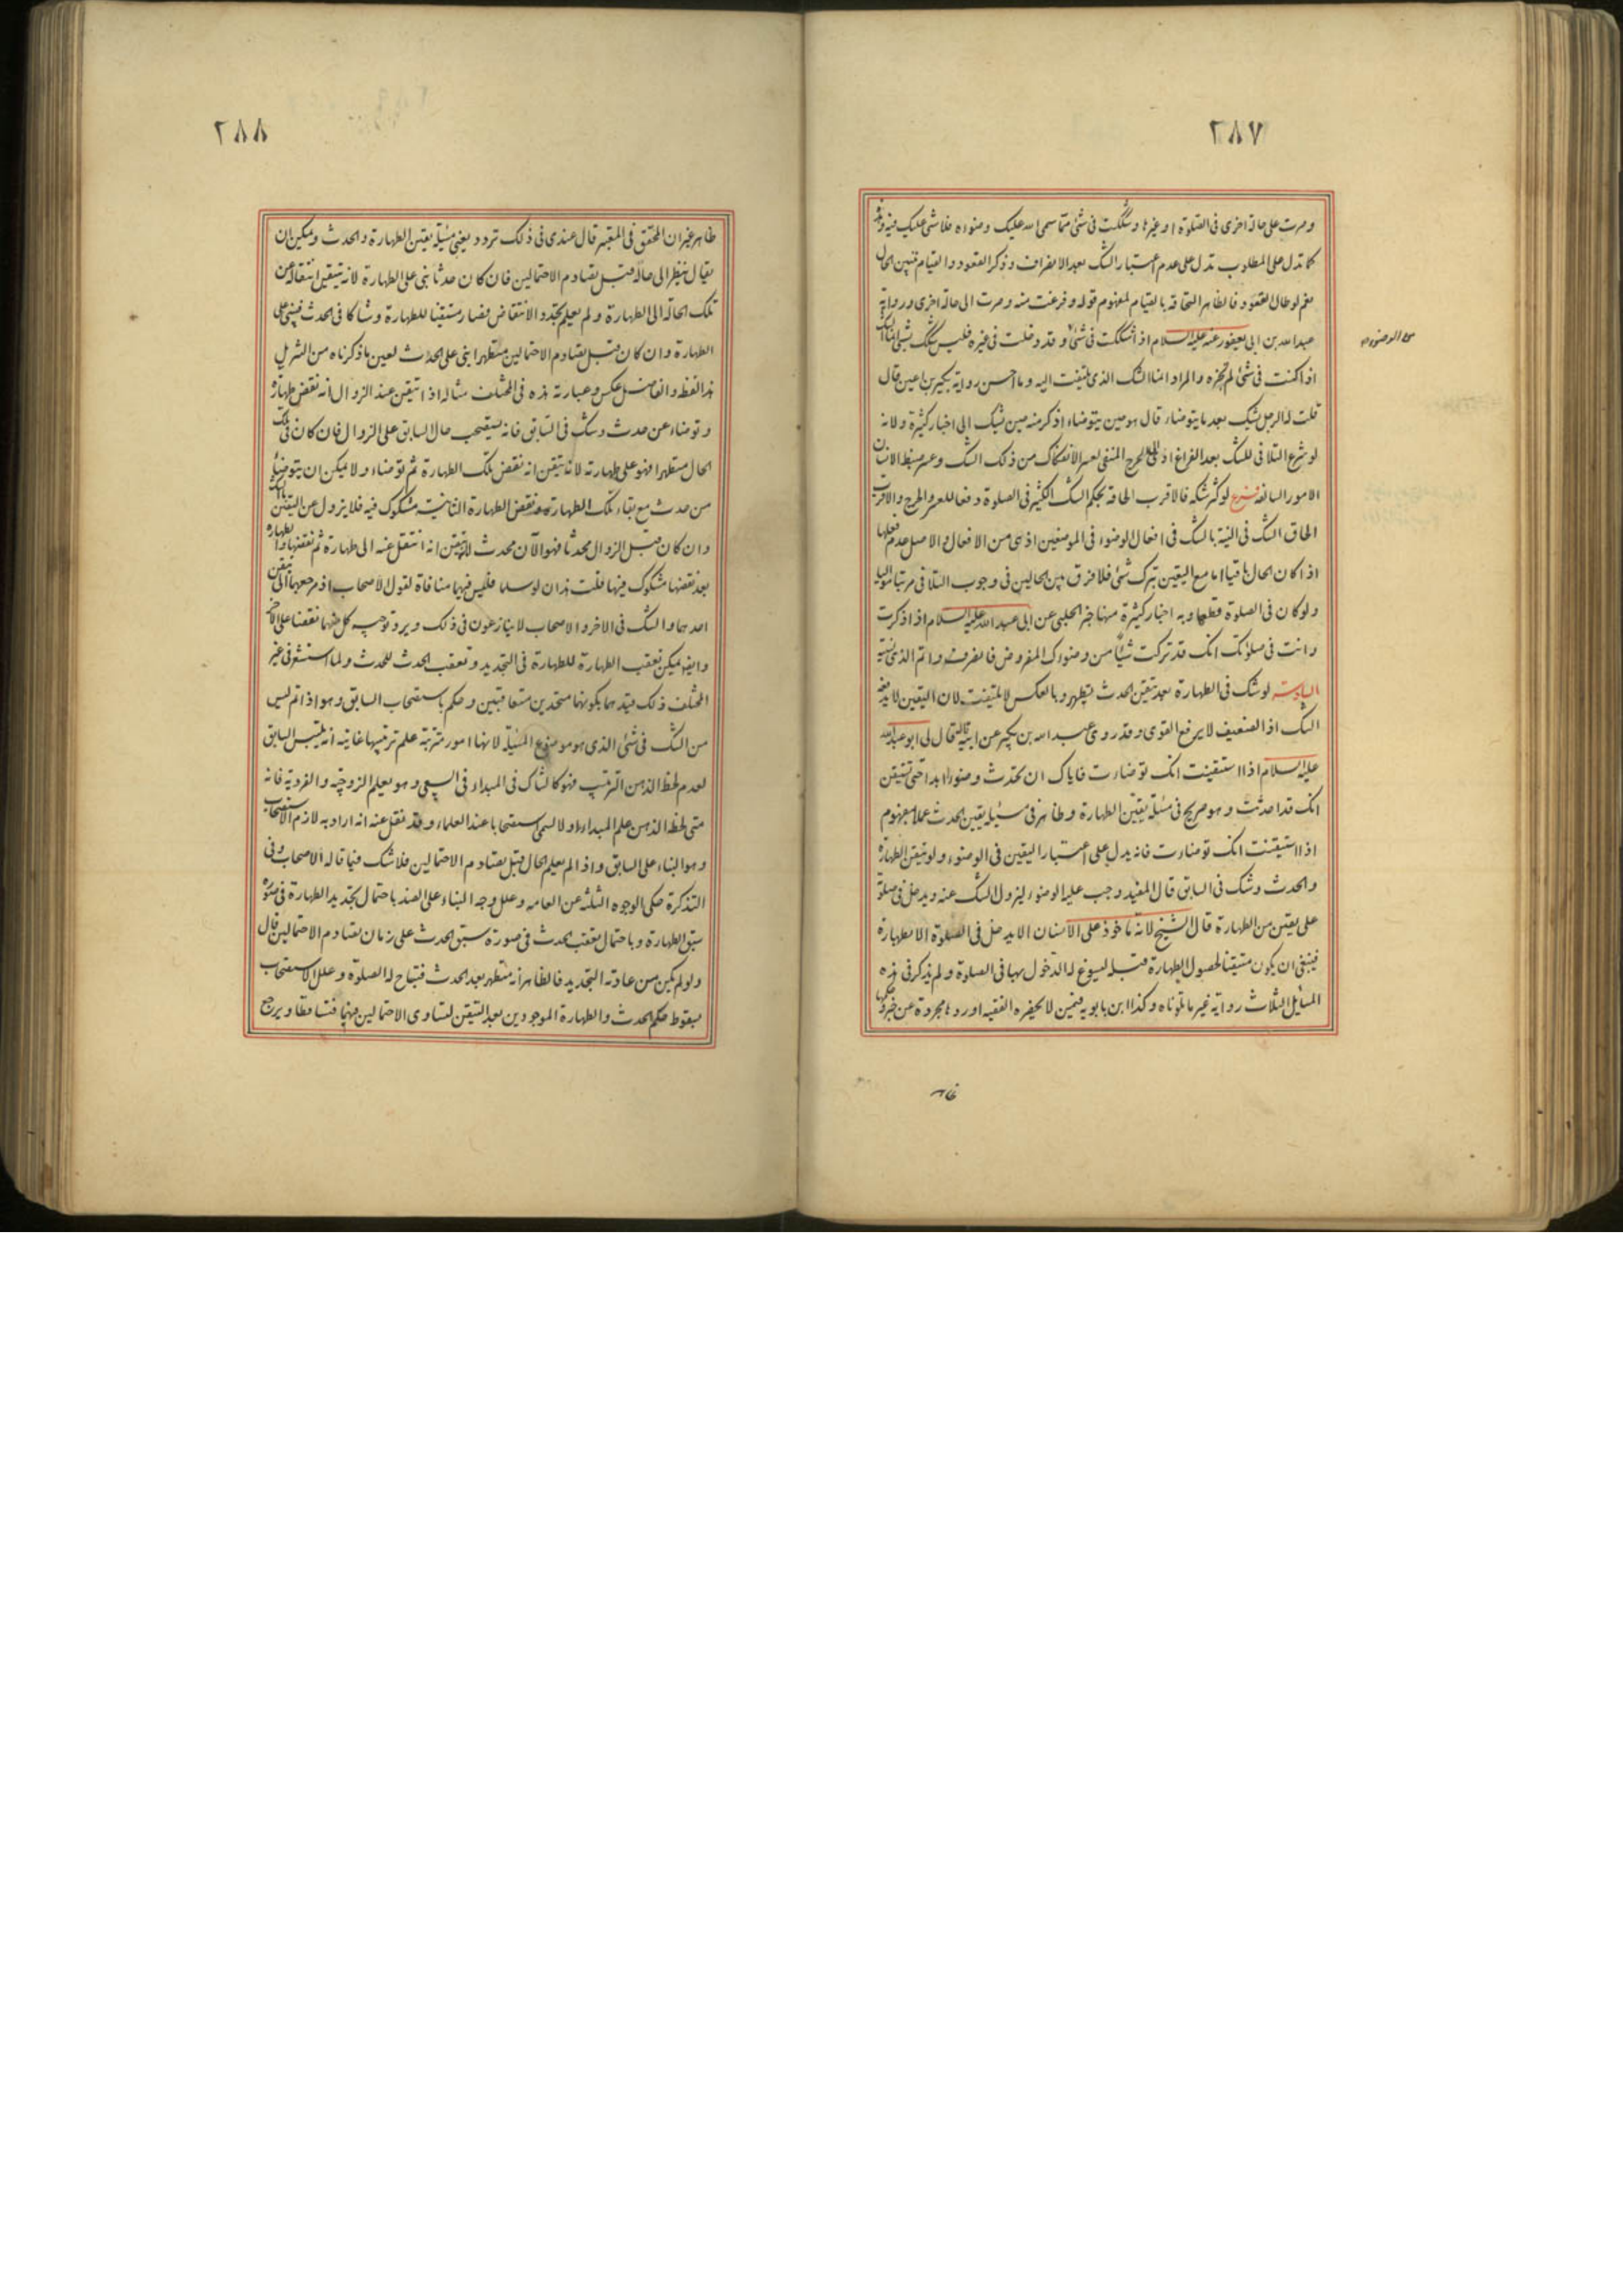 ٢٨٧
وصرت على حالة اخرى فى الصلوة او غيرها وشككت فى شئ مما سمى الله عليك وضوءه فلا شئ عليك فيه وهذه
كما تدل على المطلوب تدل على عدم اعتبار الشك بعد الانصراف وذكر القعود والقيام لتبيين الحال
نعم لو طال القعود فالظاهر التحاقه بالقيام لمفهوم قوله وفرغت منه وصرت الى حالة اخرى ورواية
عبد الله بن ابى يعفور عنه عليه السلام اذا شككت فى شئ وقد دخلت فى غيره فليس شكك بشئ انما الشك
من الوضوء
اذا كنت فى شئ لم تجزه والمراد انما الشك الذى يلتفت اليه وما احسن رواية بكير بن اعين قال
قلت له الرجل يشك بعد ما يتوضاء قال هو حين يتوضاء اذكر منه حين يشك الى اخبار كثيرة ولانه
لو شرع التلافى للشك بعد الفراغ ادى الى الحرج المنفى لعسر الانفكاك من ذلك الشك وعسر ضبط الانسان
الامور السالفة فرع لو كثر شكه فالاقرب الحاقه بحكم الشك الكثير فى الصلوة دفعا للعسر والحرج والاقرب
الحاق الشك فى النية بالشك فى افعال الوضوء فى الموضعين اذ هى من الافعال والاصل عدم فعلها
اذا كان الحال باقيا اما مع اليقين بترك شئ فلا فرق بين الحالين فى وجوب التلافى مرتبا مواليا
ولو كان فى الصلوة قطعها وبه اخبار كثيرة منها خبر الحلبى عن ابى عبد الله عليه السلام اذا ذكرت
وانت فى صلوتك انك قد تركت شيئا من وضوءك المفروض فانصرف واتم الذى نسيته
السادسة لو شك فى الطهارة بعد تيقن الحدث يتطهر وبالعكس لا يلتفت لان اليقين لا يدفعه
الشك اذ الضعيف لا يرفع القوى وقد روى عبد الله بن بكير عن ابيه قال قال لى ابو عبد الله
عليه السلام اذا استيقنت انك توضات فاياك ان تحدث وضوءا ابدا حتى تستيقن
انك قد احدثت وهو صريح فى مسئلة يقين الطهارة وظاهر فى مسئلة يقين الحدث عملا بمفهوم
اذا استيقنت انك توضات فانه يدل على اعتبار اليقين فى الوضوء ولو تيقن الطهارة
والحدث وشك فى السابق قال المفيد وجب عليه الوضوء ليزول الشك عنه ويدخل فى صلوته
على يقين من الطهارة قال الشيخ لانه ماخوذ على الانسان الا يدخل فى الصلوة الا بطهارة
فينبغى ان يكون متيقنا لحصول الطهارة قبله ليسوغ له الدخول بها فى الصلوة ولم يذكر فى هذه
المسائل الثلاث رواية غير ما تلوناه وكذا ابن بابويه فيمن لا يحضره الفقيه اوردها مجردة عن خبر وكلها
٢٨٨
ظاهر غير ان المحقق فى المعتبر قال عندى فى ذلك تردد يعنى مسئلة يقين الطهارة والحدث ويمكن ان
يقال ينظر الى حاله قبل تصادم الاحتمالين فان كان حدثا بنى على الطهارة لانه تيقن انتقاله عن
تلك الحالة الى الطهارة ولم يعلم تجدد الانتقاض فصار متيقنا للطهارة وشاكا فى الحدث فيبنى على
الطهارة وان كان قبل تصادم الاحتمالين متطهرا بنى على الحدث لعين ما ذكرناه من التنزيل
هذا لفظه والفاضل عكس وعبارته هذه فى المختلف مثاله اذا تيقن عند الزوال انه نقض طهارة
وتوضاء عن حدث وشك فى السابق فانه يستصحب حال السابق على الزوال فان كان فى تلك
الحال متطهرا فهو على طهارته لانه تيقن انه نقض تلك الطهارة ثم توضاء ولا يمكن ان يتوضاء
من حدث مع بقاء تلك الطهارة ونقض الطهارة الثانية مشكوك فيه فلا يزول عن اليقين بالشك
وان كان قبل الزوال محدثا فهو الآن محدث لانه تيقن انه انتقل عنه الى طهارة ثم نقضها والطهارة
بعد نقضها مشكوك فيها قلت هذان لو سلما فليس فيهما منافاة لقول الاصحاب اذ مرجعهما الى تيقن
احدهما والشك فى الاخر والاصحاب لا ينازعون فى ذلك ويرد توجيه كل منهما نقضا على الآخر
وايضا يمكن تعقب الطهارة للطهارة فى التجديد وتعقب الحدث للحدث ولما استشعر فى غير
المختلف ذلك قيدهما بكونهما متحدين متعاقبين وحكم باستصحاب السابق وهو اذا تم ليس
من الشك فى شئ الذى هو موضوع المسئلة لانها امور مترتبة علم ترتيبها غايته انه يلتبس السابق
لعدم لحظ الذهن الترتيب فهو كالشاك فى المبداء فى السعى وهو يعلم الزوجية والفردية فانه
متى لحظ الذهن علم المبداء ولا يسمى استصحابا عند العلماء وقد نقل عنه انه اراد به لازم الاستصحاب
وهو البناء على السابق واذا لم يعلم الحال قبل تصادم الاحتمالين فلا شك فيما قاله الاصحاب وفى
التذكرة حكى الوجوه الثلثة عن العامه وعلل وجه البناء على الضد باحتمال تجديد الطهارة فى صورة
سبق الطهارة وباحتمال تعقب الحدث فى صورة سبق الحدث على زمان تصادم الاحتمالين قال
ولو لم يكن من عادته التجديد فالظاهر انه متطهر بعد الحدث فتباح له الصلوة وعلل الاستصحاب
بسقوط حكم الحدث والطهارة الموجودين بعد التيقن لتساوى الاحتمالين فيهما فتساقطا ويرجع